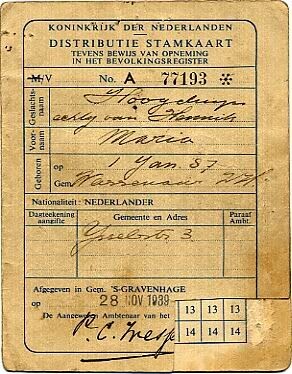 KONINKRIJK DER NEDERLANDEN
DISTRIBUTIE STAMKAART
TEVENS BEWIJS VAN OPNEMING
IN HET BEVOLKINGSREGISTER
M/V No. A 77193
Geslachts-
naam
Voor-
naam Maria
Geboren op 1 Jan. 87
Gem. Wassenaar Z.H.
Nationaliteit: NEDERLANDER
Dagteekening
aangifte Gemeente en Adres Paraaf
Ambt.
3
Afgegeven in Gem. 'S-GRAVENHAGE
op 28 NOV 1939
De Aangewezen Ambtenaar van het
P. C.
13 13 13
14 14 14